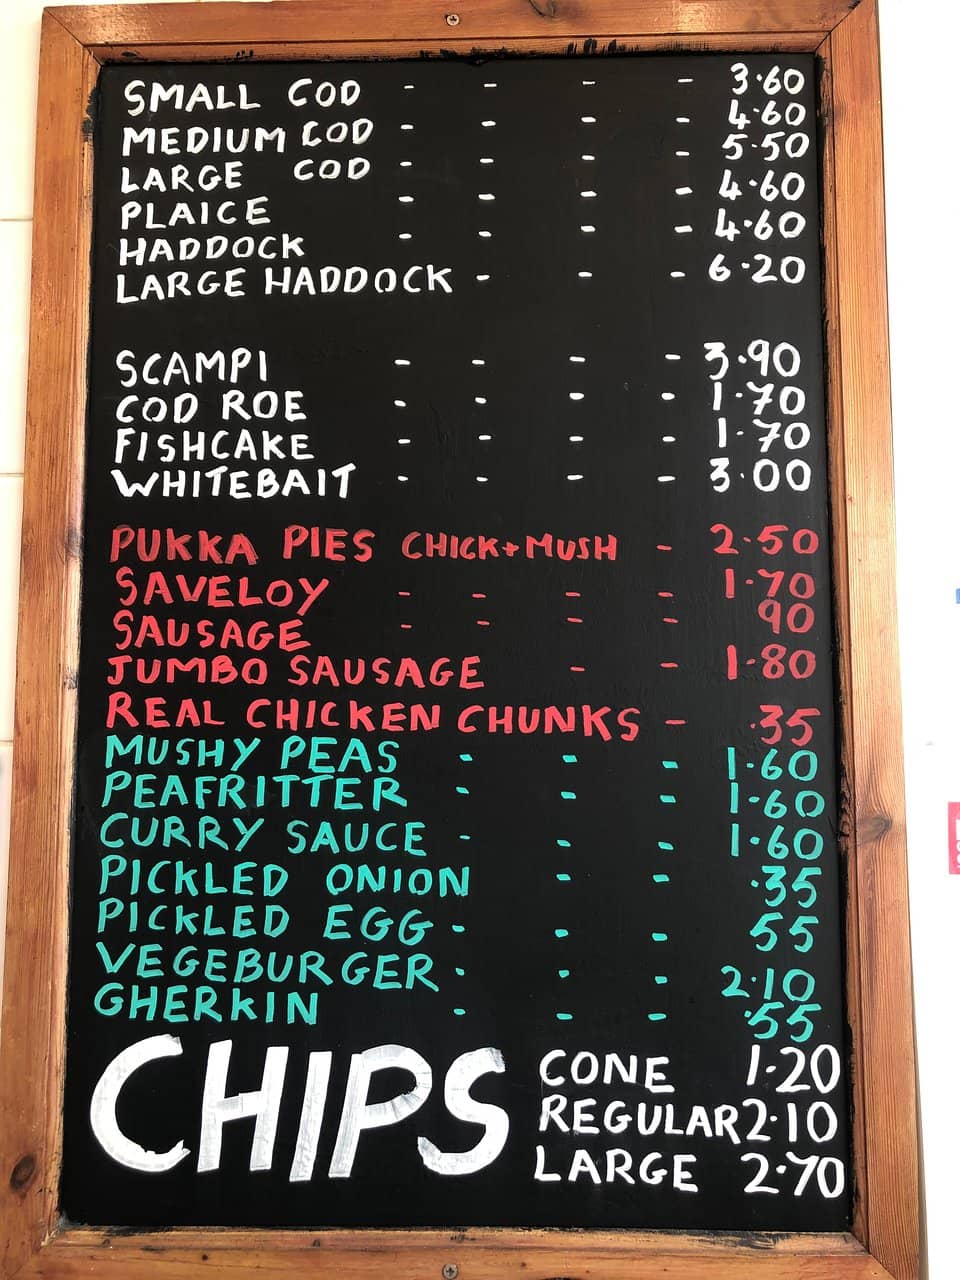 SMALL COD - - - - 3·60
MEDIUM COD - - - - 4·60
LARGE COD - - - - 5·50
PLAICE - - - - 4·60
HADDOCK - - - - 4·60
LARGE HADDOCK - - - 6·20
SCAMPI - - - - 3·90
COD ROE - - - - 1·70
FISHCAKE - - - - 1·70
WHITEBAIT - - - - 3·00
PUKKA PIES CHICK+MUSH - 2·50
SAVELOY - - - - 1·70
SAUSAGE - - - - 90
JUMBO SAUSAGE - - 1·80
REAL CHICKEN CHUNKS - ·35
MUSHY PEAS - - - 1·60
PEAFRITTER - - - 1·60
CURRY SAUCE - - - 1·60
PICKLED ONION - - ·35
PICKLED EGG - - - 55
VEGEBURGER - - - 2·10
GHERKIN - - - ·55
CHIPS
CONE 1·20
REGULAR 2·10
LARGE 2·70